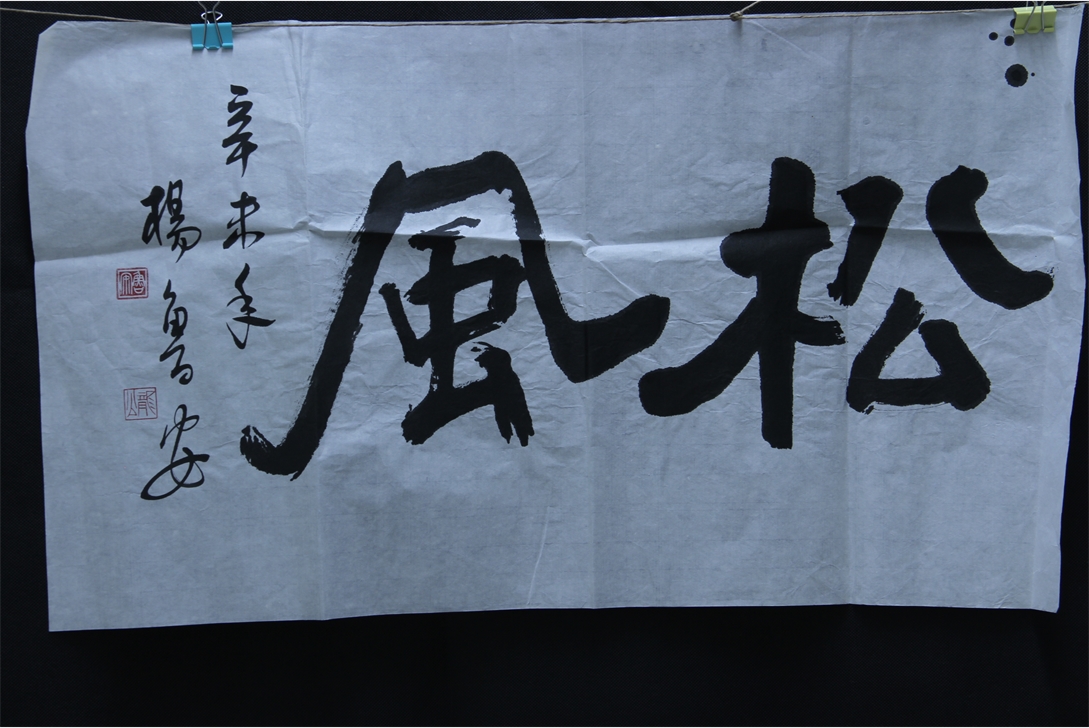 松风
辛未年
楊魯安